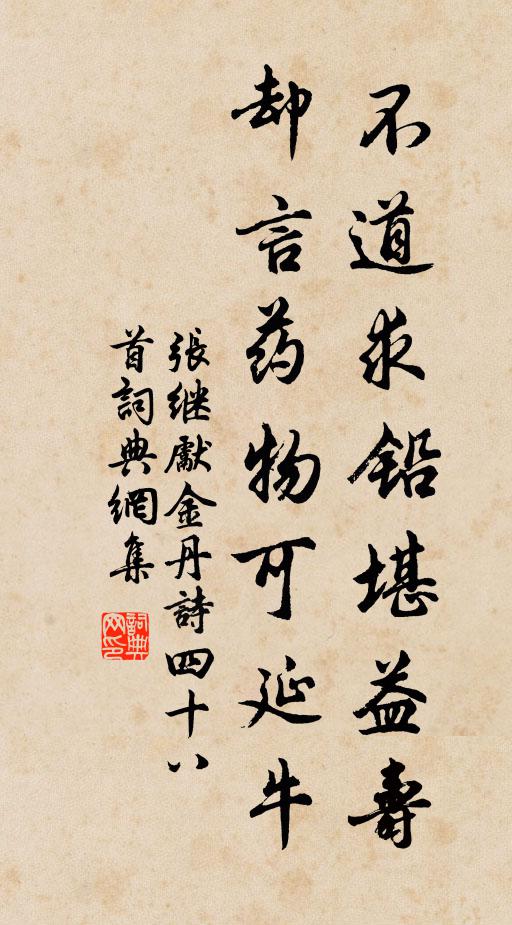 不道求铅堪益壽
却言药物可延牛
張继獻金丹詩四十八
首詞典網集
詞典网印